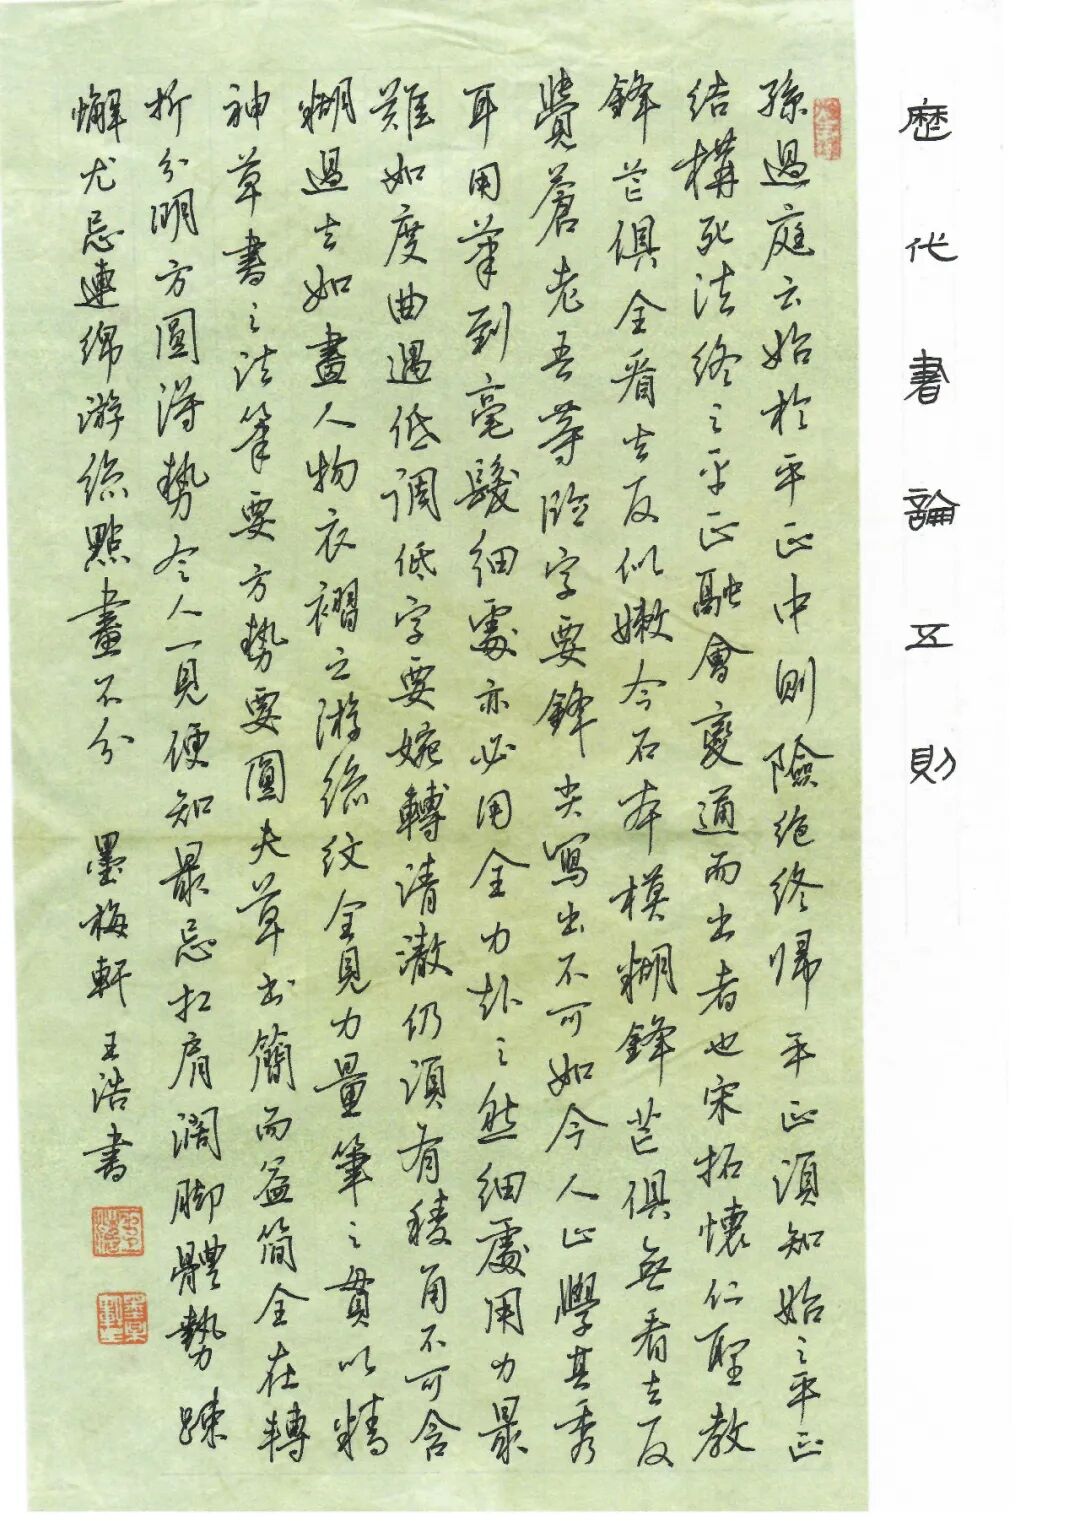 歷代書論五則
孫過庭云始於平正中則險絶終歸平正須知始之平正
結構死法終之平正融會變通而出者也宋拓懷仁聖教
鋒芒俱全看去反似嫩今石本模糊鋒芒俱無看去反
覺蒼老吾等臨字要鋒尖寫出不可如今人止學其秀
耳用筆到毫髮細處亦必用全力赴之然細處用力最
難如度曲遇低調低字要婉轉清澈仍須有稜角不可含
糊過去如畫人物衣褶之游絲紋全見力量筆之貫以精
神草書之法筆要方勢要圓夫草書簡而益簡全在轉
折分明方圓得勢令人一見便知最忌扛肩濶脚體勢踈
懈尤忌連綿游絲點畫不分 墨梅軒 王浩書